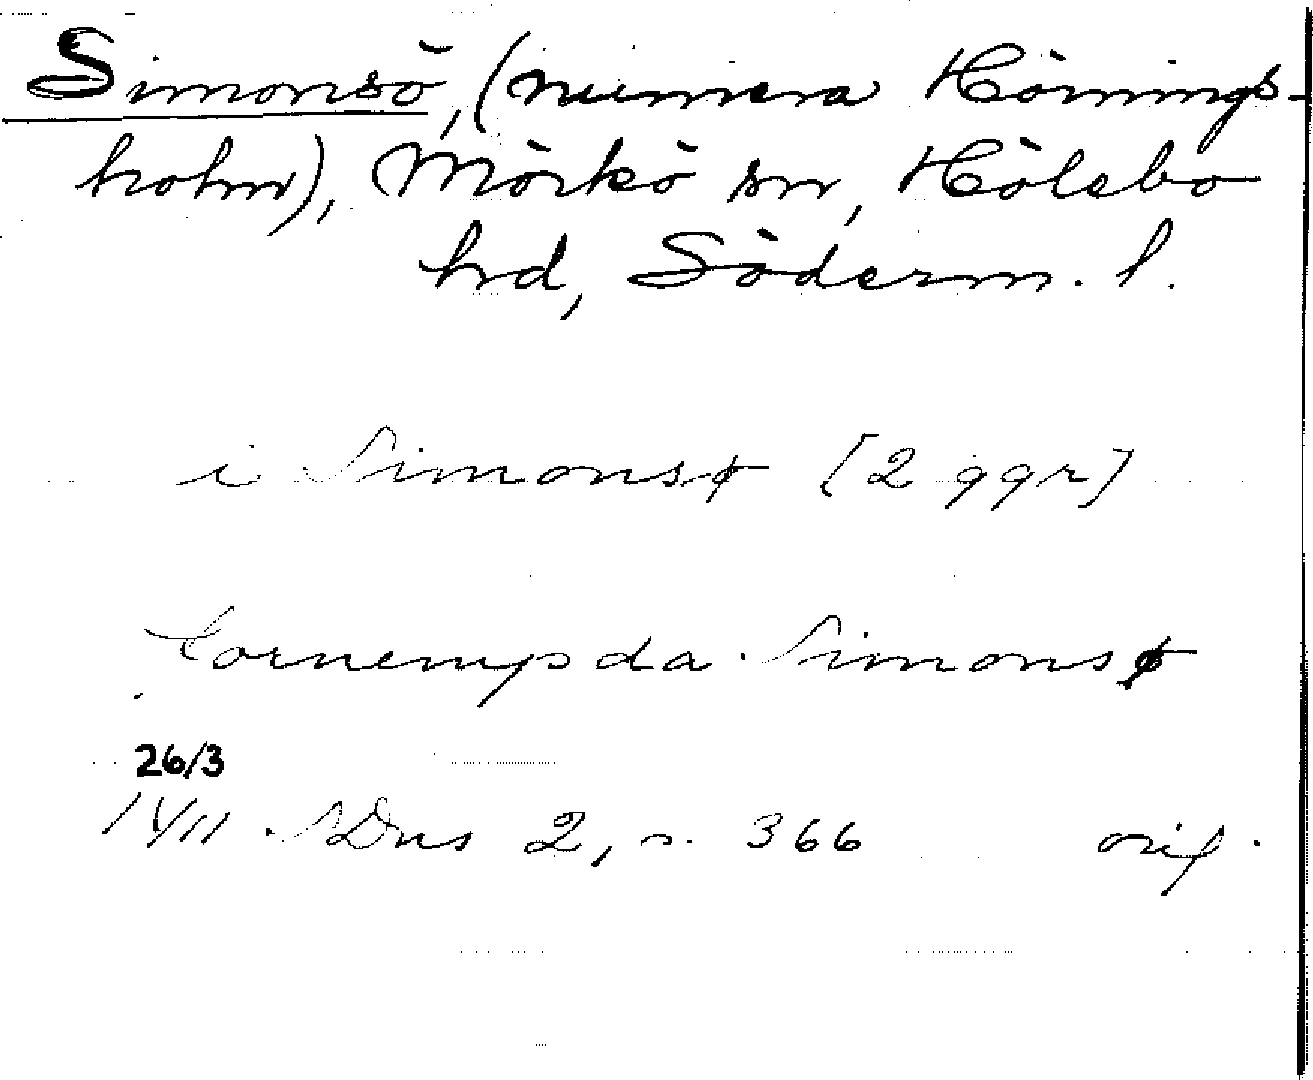 Simonsö, (numera Hörnings-
holm), Mörkö sn, Hölebo
hd, Söderm. l.
i Simonsø [2 ggr]
Cornewpda Simonsø
26/3
1411 SDns 2, n. 366 orig.